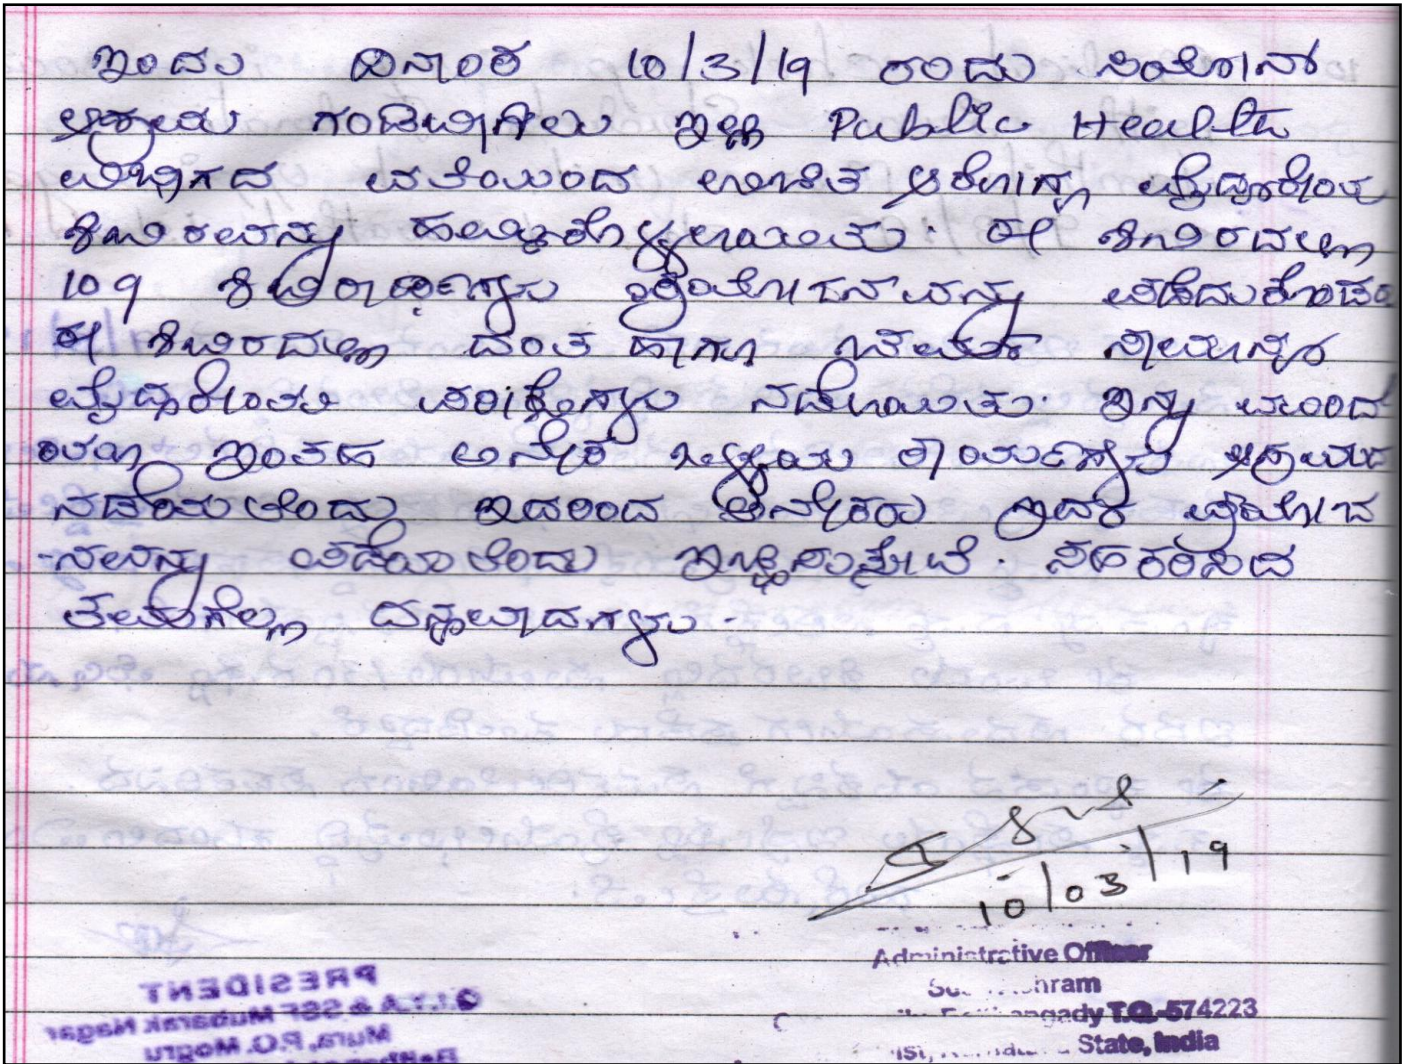 ಇಂದು ದಿನಾಂಕ 10/3/19 ರಂದು ಸಿಯೋನ್
ಆಶ್ರಮ ಗಂಡಿಬಾಗಿಲು ಇಲ್ಲಿ Public Health
ವಿಭಾಗದ ವತಿಯಿಂದ ಉಚಿತ ಆರೋಗ್ಯ ವೈದ್ಯಕೀಯ
ಶಿಬಿರವನ್ನು ಹಮ್ಮಿಕೊಳ್ಳಲಾಯಿತು. ಈ ಶಿಬಿರದಲ್ಲಿ
109 ಶಿಬಿರಾರ್ಥಿಗಳು ಪ್ರಯೋಜನವನ್ನು ಪಡೆದುಕೊಂಡರು
ಈ ಶಿಬಿರದಲ್ಲಿ ದಂತ ಹಾಗೂ ಜನರಲ್ ಸಾಮಾನ್ಯ
ವೈದ್ಯಕೀಯ ಪರೀಕ್ಷೆಗಳು ನಡೆಯಿತು. ಇನ್ನು ಮುಂದೆ
ಯೂ ಇಂತಹ ಅನೇಕ ಒಳ್ಳೆಯ ಕಾರ್ಯಗಳು
ನಡೆಯಲೆಂದು ಇದರಿಂದ ಅನೇಕರು ಇದರ ಪ್ರಯೋಜ
-ನವನ್ನು ಪಡೆಯಲೆಂದು ಇಚ್ಛಿಸುತ್ತೇವೆ. ಸಹಕರಿಸಿದ
ತಮಗೆಲ್ಲಾ ಧನ್ಯವಾದಗಳು.
10/03/19
Administrative Officer
T.Q.-574223
State, India
PRESIDENT
& SSF Mubarak Nagar
Mura, P.O. Mogru